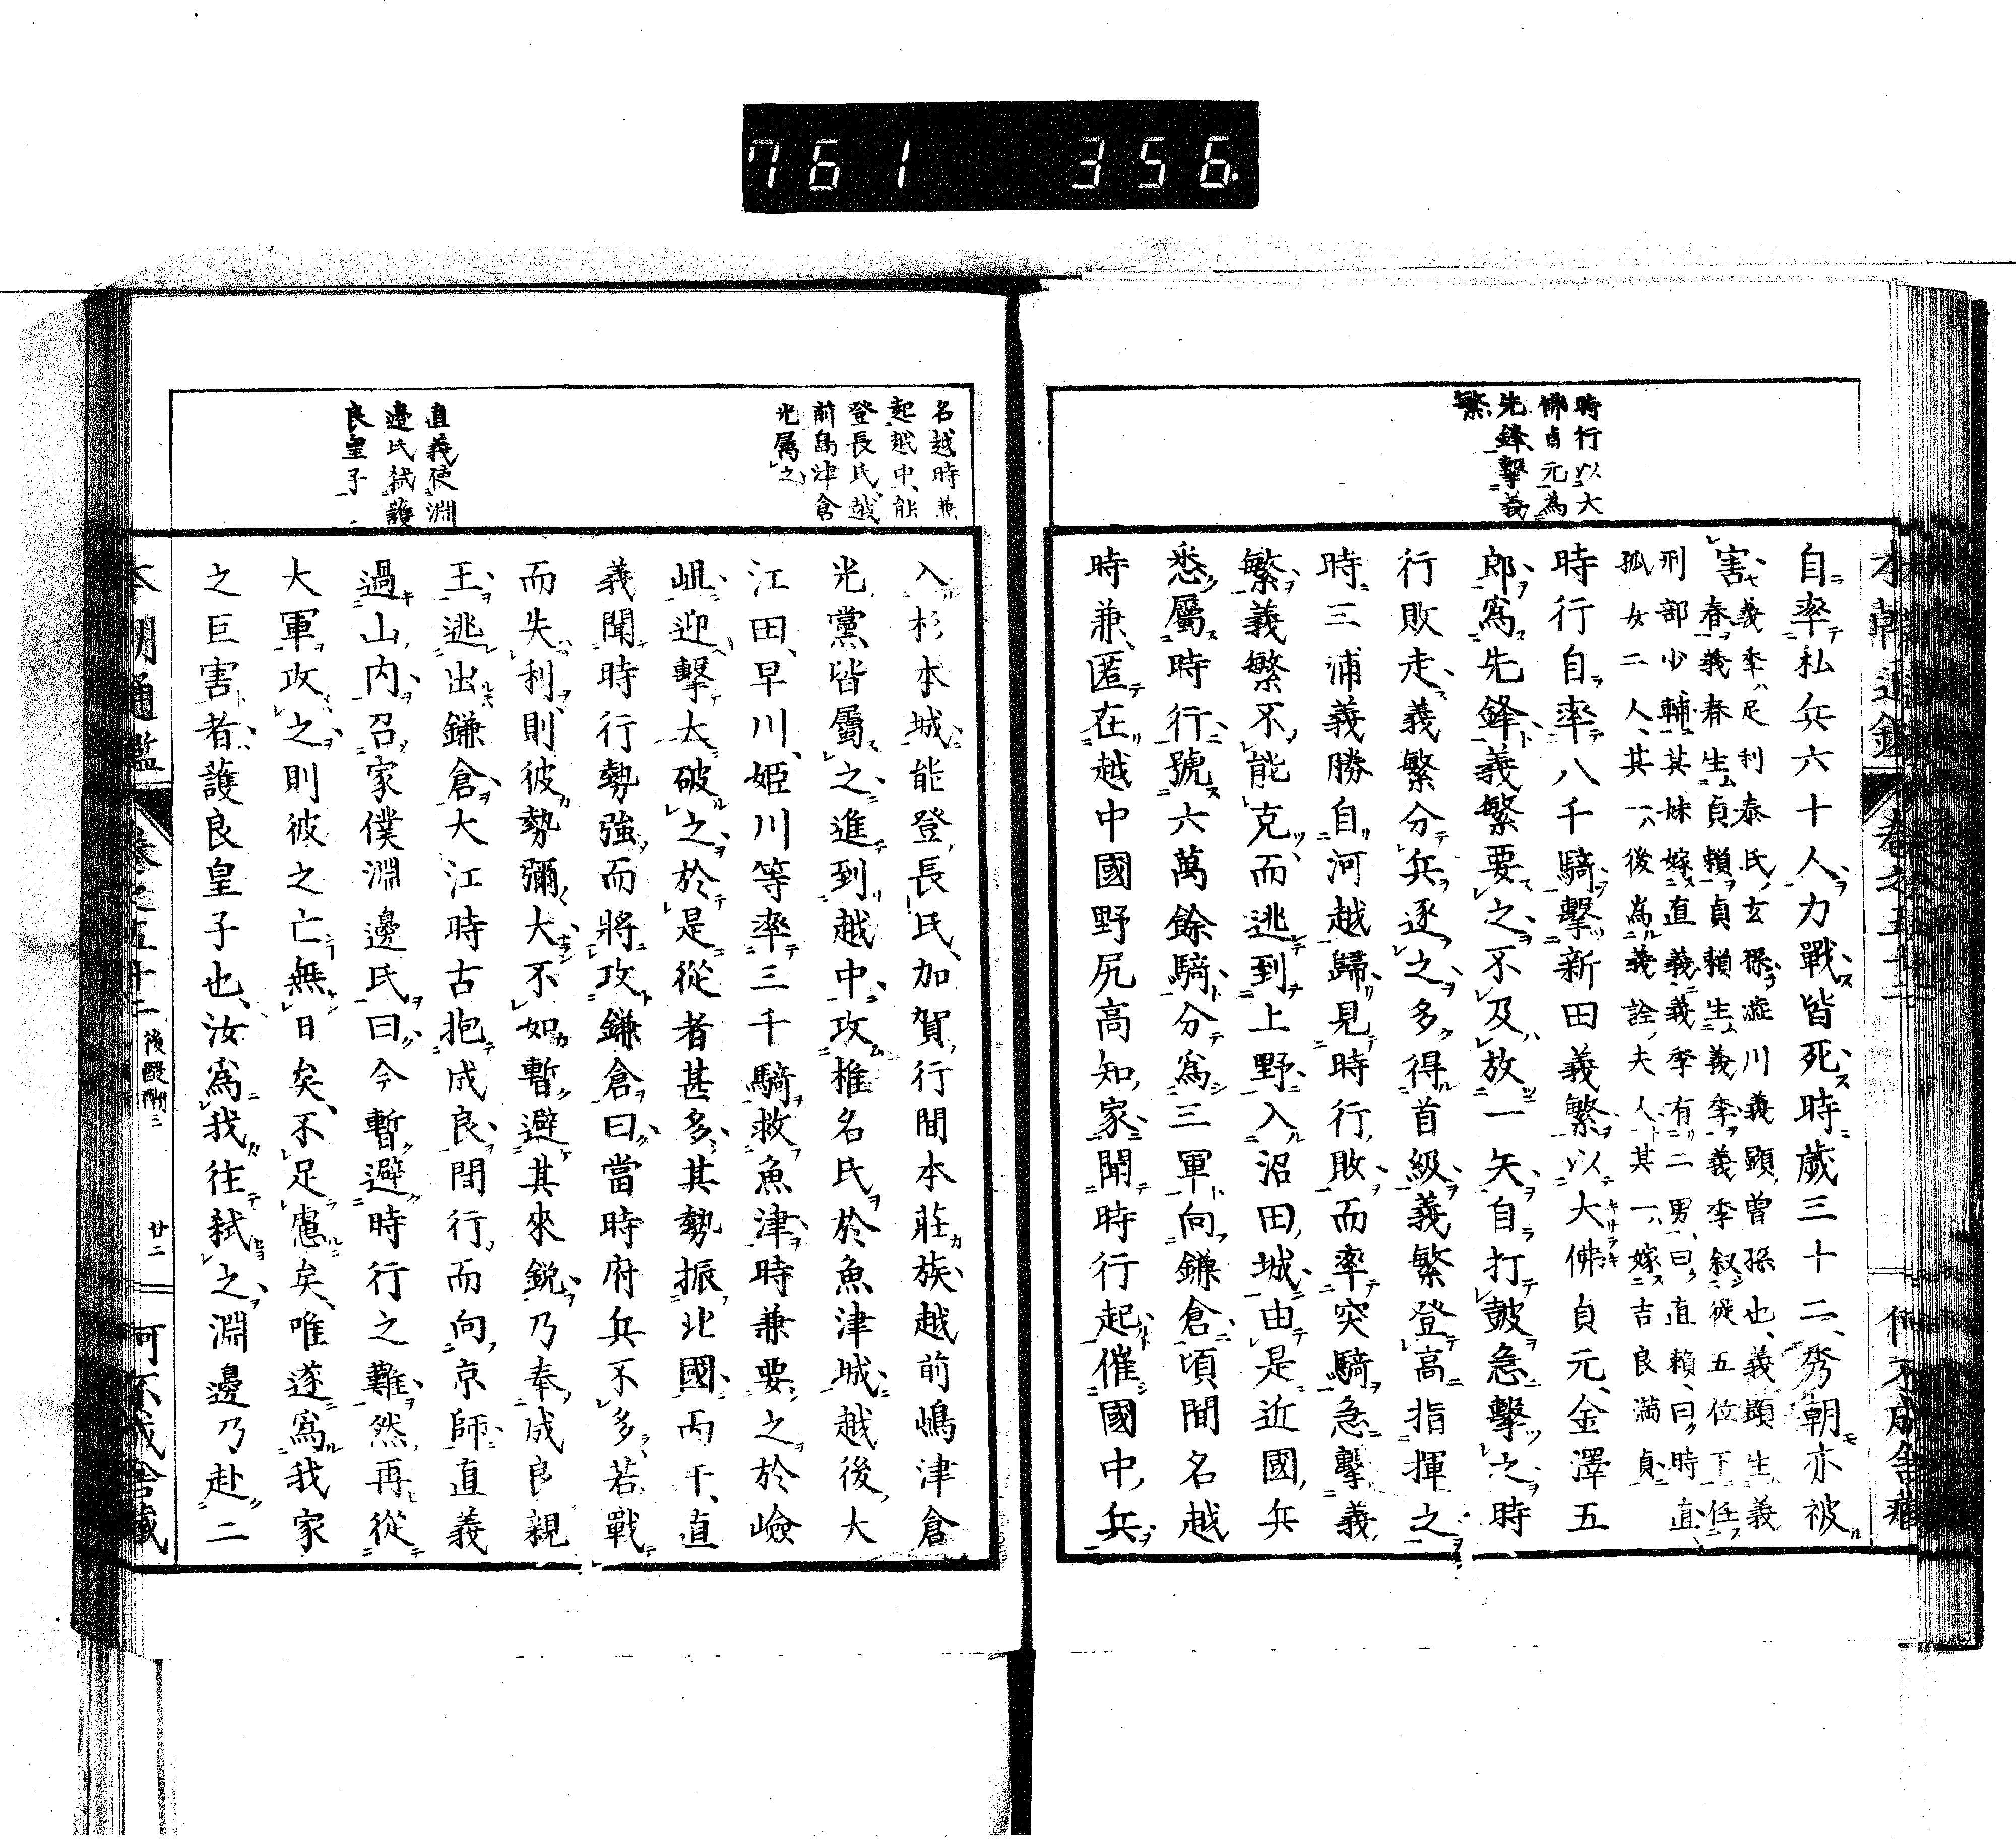 761 356
時行以大
佛貞元為
先鋒擊義
繁
自率私兵六十人力戰皆死時歲三十二秀朝亦被
害義季足利泰氏玄孫澁川義顯曾孫也義顯生義
春義春生貞賴貞賴生義季義季叙從五位下任
刑部少輔其妹嫁直義義季有二男曰直賴曰時直
孤女二人其一後為義詮夫人其一嫁吉良満貞
時行自率八千騎擊新田義繁以大佛貞元金澤五
郎為先鋒義繁要之不及放一矢自打皷急擊之時
行敗走義繁分兵逐之多得首級義繁登高指揮之
時三浦義勝自河越歸見時行敗而率突騎急擊義
繁義繁不能克而逃到上野入沼田城由是近國兵
悉屬時行號六萬餘騎分爲三軍向鎌倉頃間名越
時兼匿在越中國野尻高知家聞時行起催國中兵
名越時兼
起越中能
登長氏越
前島津倉
光屬之
直義使淵
邊氏弑護
良皇子
入杉本城能登長氏加賀行間本莊族越前嶋津倉
光黨皆屬之進到越中攻椎名氏於魚津城越後大
江田早川姬川等率三千騎救魚津時兼要之於嶮
岨迎擊大破之於是從者甚多其勢振北國丙干直
義聞時行勢強而將攻鎌倉曰當時府兵不多若戰
而失利則彼勢彌大不如暫避其來銳乃奉成良親
王逃出鎌倉大江時古抱成良間行而向京師直義
過山内召家僕淵邊氏曰今暫避時行之難然再從
大軍攻之則彼之亡無日矣不足慮矣唯遂爲我家
之巨害者護良皇子也汝爲我往弑之淵邊乃赴二
本朝通鑑
卷之五十二
後醍醐三
廿二